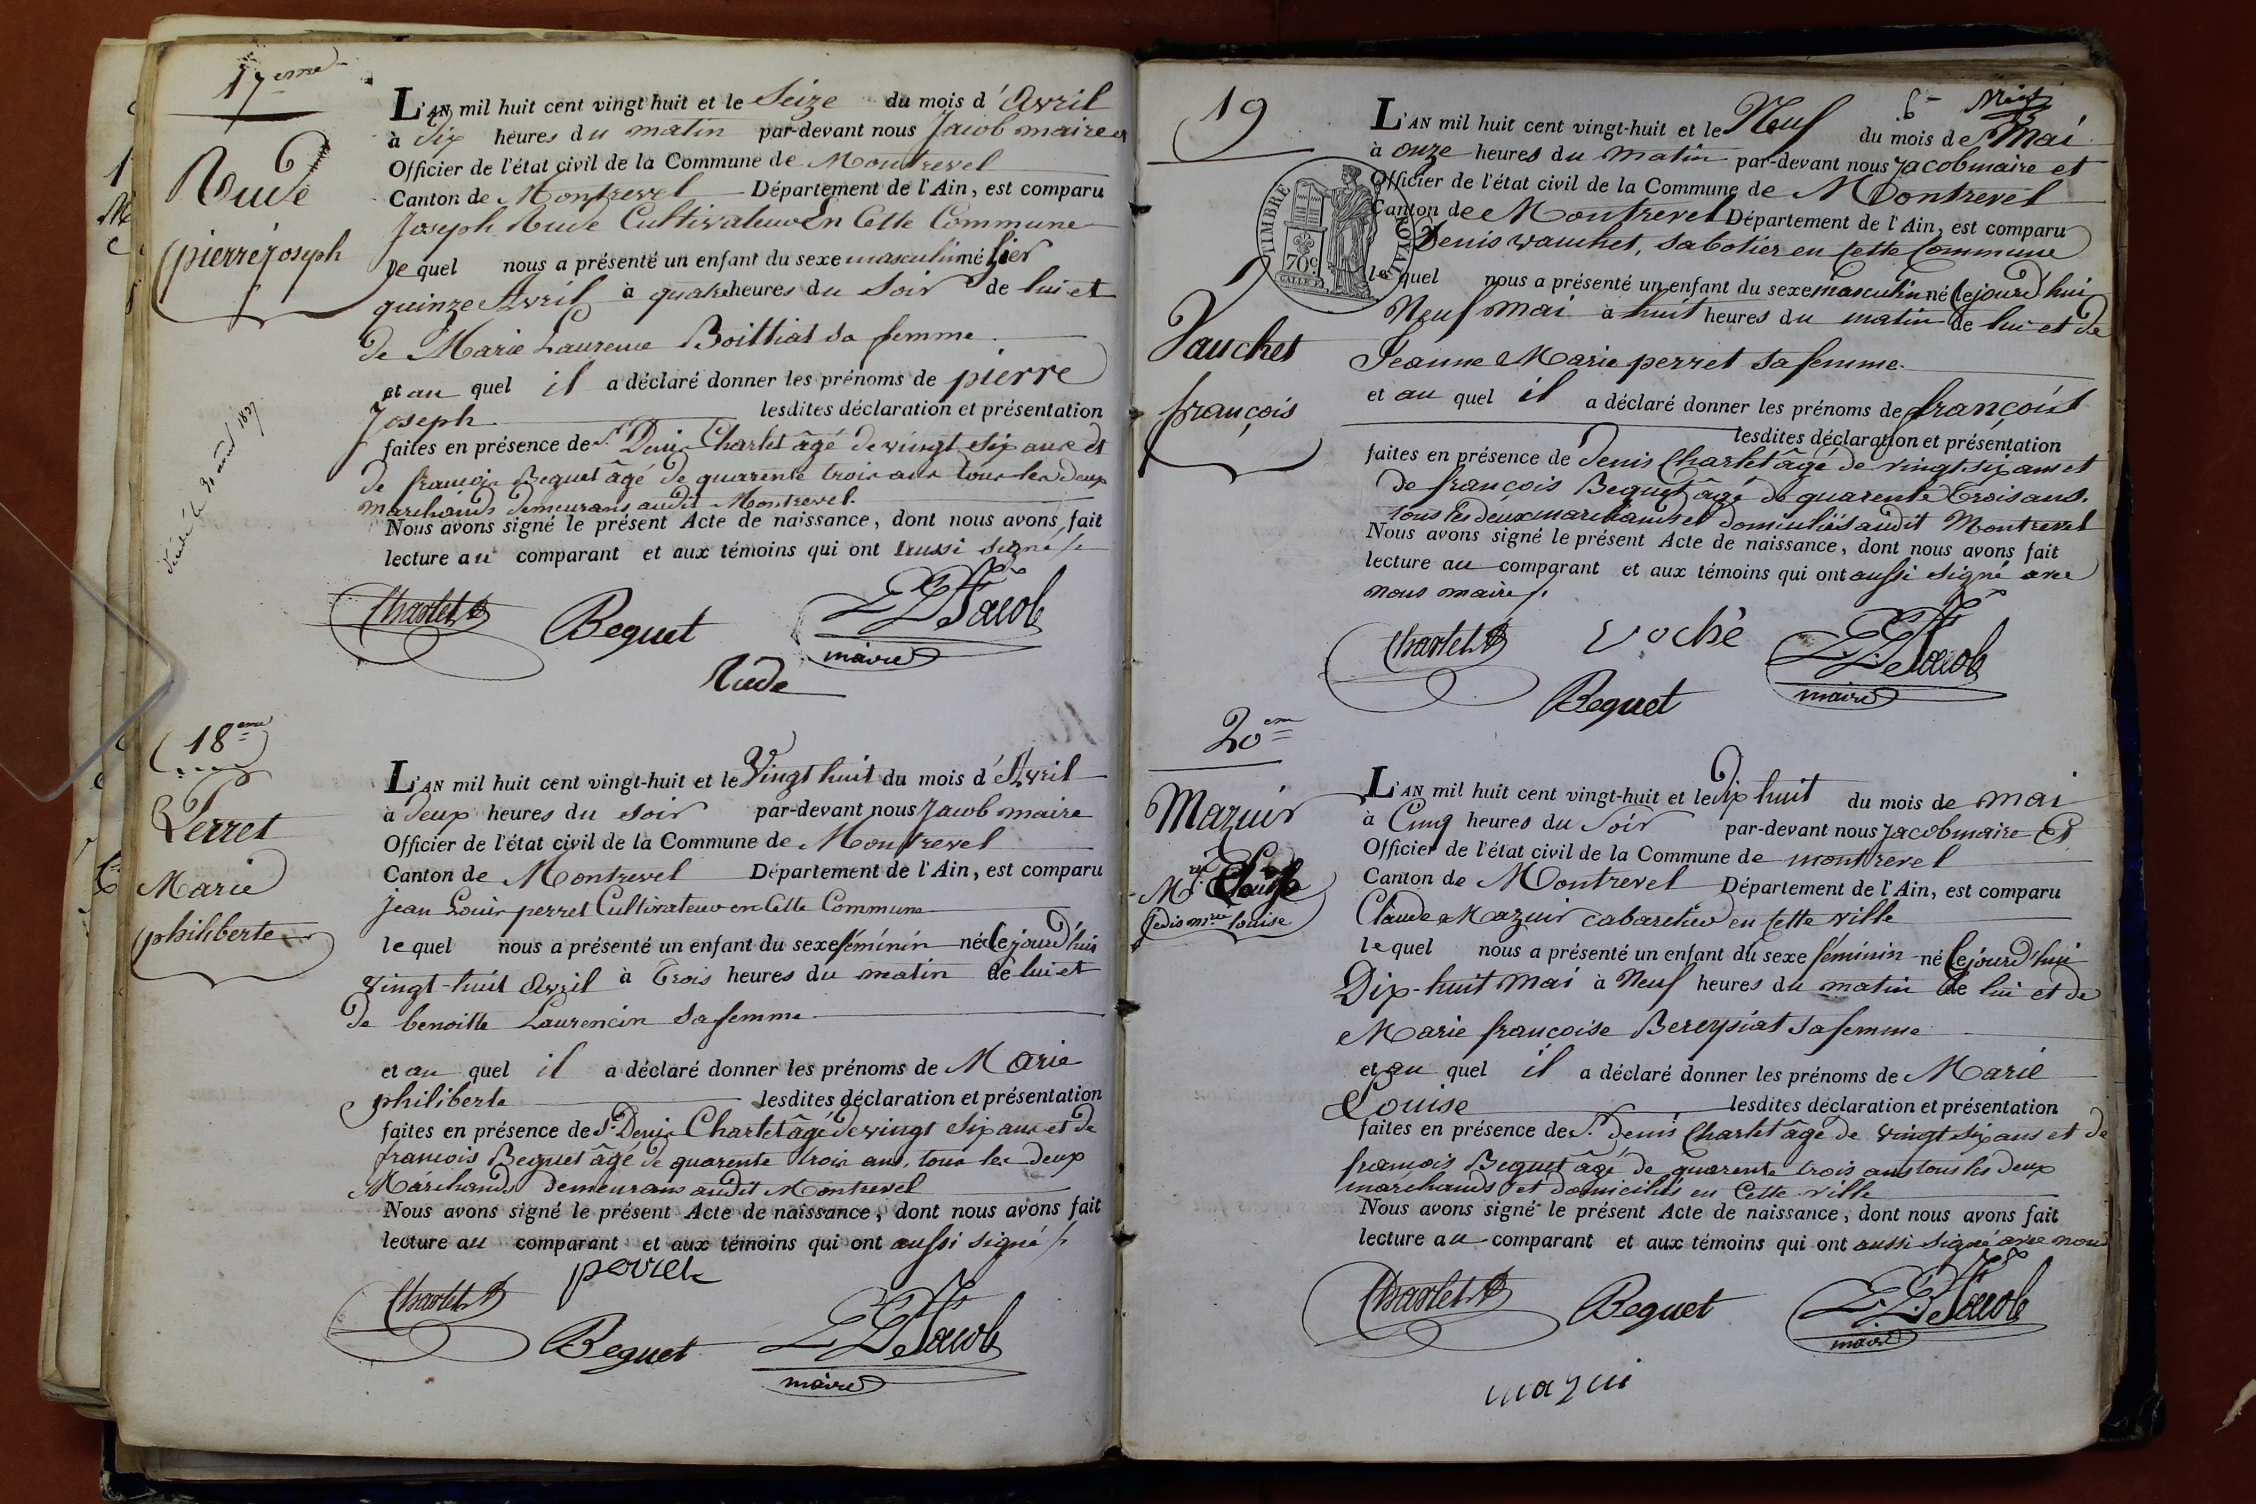 17eme
Rude
pierre joseph
L'AN mil huit cent vingt huit et le Seize du mois d'Avril
à Dix heures du matin par-devant nous Jacob maire et
Officier de l'état civil de la Commune de Montrevel
Canton de Montrevel Département de l'Ain, est comparu
Joseph Rude Cultivateur En Cette Commune
lequel nous a présenté un enfant du sexe masculin né hier
quinze Avril à quatre heures du Soir de lui et
de Marie Laurence Boittiat sa femme
et au quel il a déclaré donner les prénoms de pierre
Joseph lesdites déclaration et présentation
faites en présence de Sr. Denis Charlet âgé de vingt six ans et
de françois Beguet âgé de quarente trois ans tous les deux
marchands demeurans audit Montrevel.
Nous avons signé le présent Acte de naissance, dont nous avons fait
lecture au comparant et aux témoins qui ont aussi signé /.
Charlet Beguet Jacob
maire
Rude
18eme
Perret
Marie
philiberte
L'AN mil huit cent vingt-huit et le Vingt huit du mois d'Avril
à deux heures du soir par-devant nous Jacob maire
Officier de l'état civil de la Commune de Montrevel
Canton de Montrevel Département de l'Ain, est comparu
jean Louis perret Cultivateur en Cette Commune
lequel nous a présenté un enfant du sexe féminin né Cejourd'hui
vingt-huit Avril à Trois heures du matin de lui et
de benoitte Laurencin sa femme
et au quel il a déclaré donner les prénoms de Marie
philiberte lesdites déclaration et présentation
faites en présence de Sr. Denis Charlet âgé de vingt six ans et de
francois Beguet âgé de quarente trois ans, tous les deux
Marchands demeurans audit Montrevel
Nous avons signé le présent Acte de naissance, dont nous avons fait
lecture au comparant et aux témoins qui ont aussi signé /.
perret
Charlet Beguet Jacob
maire
19
Vauchet
françois
L'AN mil huit cent vingt-huit et le Neuf du mois de Mai
à onze heures du matin par-devant nous Jacob maire et
Officier de l'état civil de la Commune de Montrevel
Canton de Montrevel Département de l'Ain, est comparu
TIMBRE ROYAL
70 c
Denis vauchet, sabotier en Cette Commune
lequel nous a présenté un enfant du sexe masculin né Cejourd'hui
Neuf mai à huit heures du matin de lui et de
Jeanne Marie perret sa femme.
et au quel il a déclaré donner les prénoms de françois
lesdites déclaration et présentation
faites en présence de Denis Charlet âgé de vingt six ans et
de françois Beguet âgé de quarente trois ans,
tous les deux marchands et domiciliés audit Montrevel
Nous avons signé le présent Acte de naissance, dont nous avons fait
lecture au comparant et aux témoins qui ont aussi signé avec
nous maire /.
Charlet vochè Jacob
maire
Beguet
20em
Mazuir
Mrie Louise
je dis mrie louise
L'AN mil huit cent vingt-huit et le Dix huit du mois de mai
à Cinq heures du Soir par-devant nous Jacob maire Et
Officier de l'état civil de la Commune de montrevel
Canton de Montrevel Département de l'Ain, est comparu
Claude Mazuir cabaretier en Cette ville
lequel nous a présenté un enfant du sexe féminin né Cejourd'hui
Dix-huit Mai à Neuf heures du matin de lui et de
Marie françoise Bereysiat sa femme
et au quel il a déclaré donner les prénoms de Marie
Louise lesdites déclaration et présentation
faites en présence de Sr. denis Charlet âgé de vingt six ans et de
francois Beguet âgé de quarente trois ans tous les deux
marchands et domiciliés en Cette ville
Nous avons signé le présent Acte de naissance, dont nous avons fait
lecture au comparant et aux témoins qui ont aussi signé avec nous
Charlet Beguet Jacob
maire
mazui